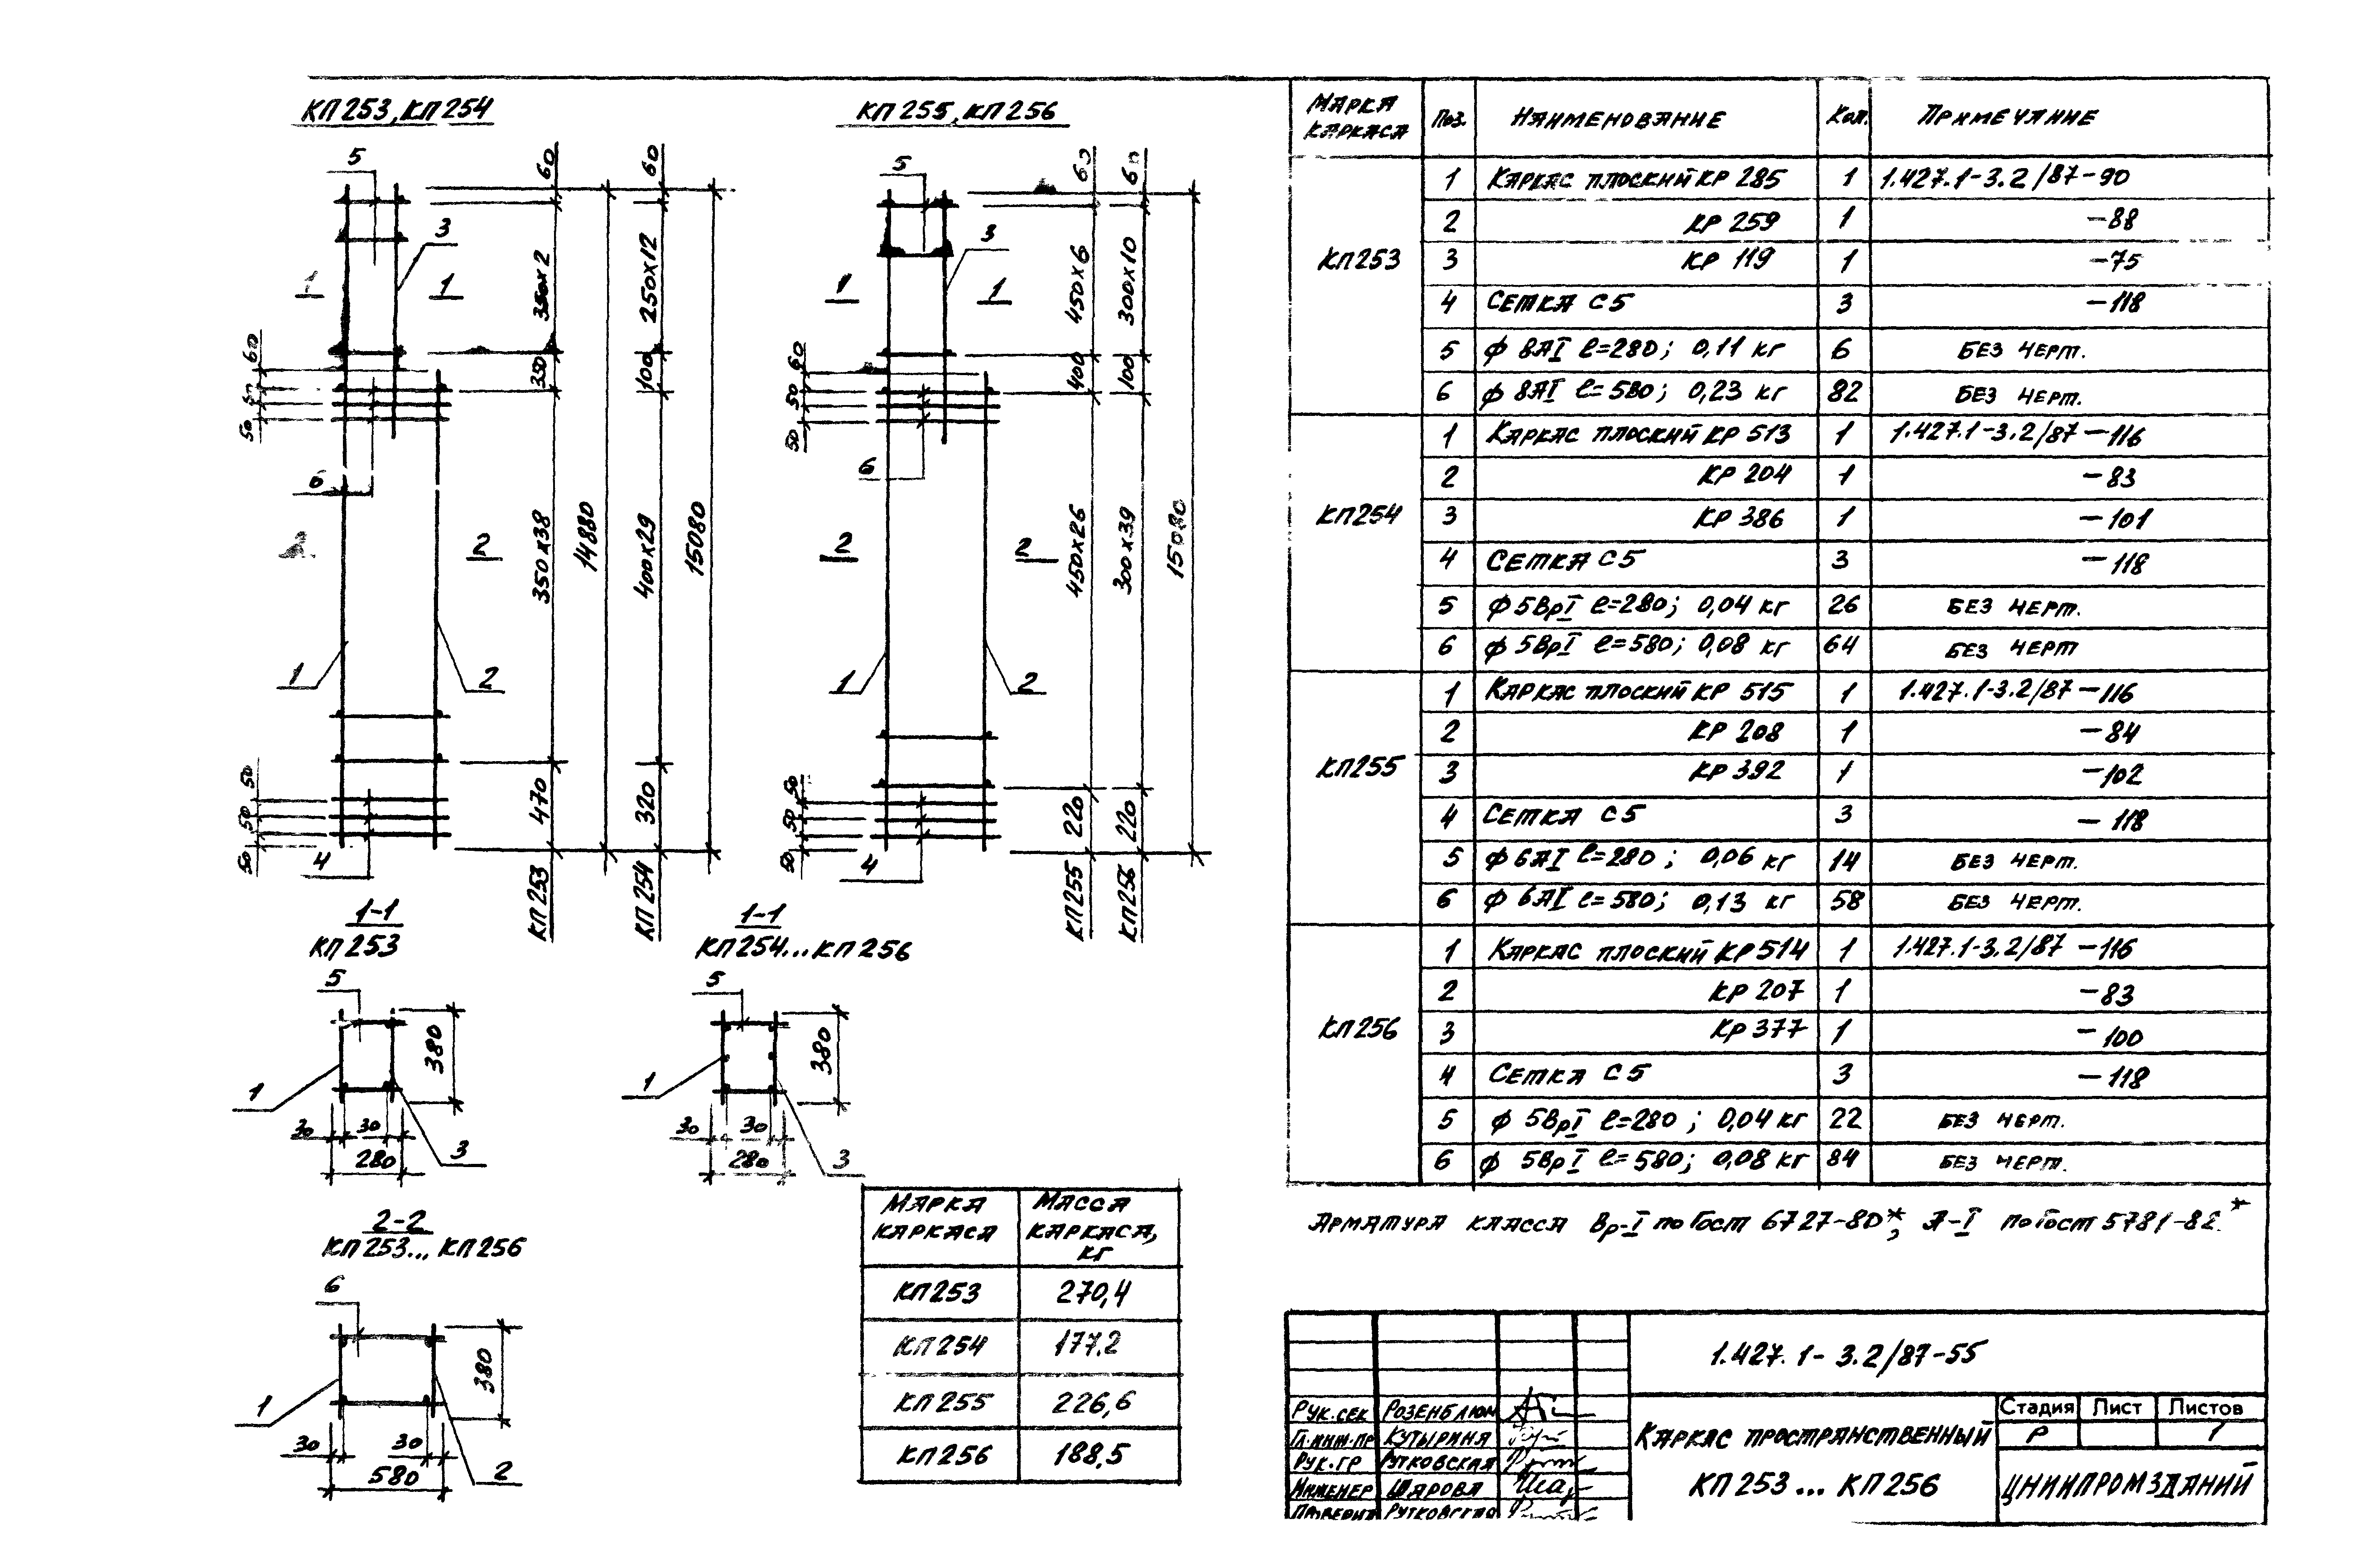 КП253, КП254
5
3
1
1
60
350х2
350
350х38
470
КП253
14880
60
250х12
100
400х29
320
КП254
15080
60
50
50
6
2
1
2
50
50
50
4
КП255, КП256
5
3
1
1
60
450х6
400
450х26
220
КП255
60
300х10
100
300х39
220
КП256
15080
60
50
50
6
2
2
1
2
50
50
50
4
1-1
КП253
5
380
1
30
30
280
3
1-1
КП254...КП256
5
380
1
30
30
280
3
2-2
КП253...КП256
6
380
1
30
30
580
2
Марка каркаса Масса каркаса, кг
КП253 270,4
КП254 177.2
КП255 226,6
КП256 188,5
Марка каркаса Поз. Наименование Кол. Примечание
КП253
1 Каркас плоский КР 285 1 1.427.1-3.2/87-90
2 КР 259 1 -88
3 КР 119 1 -75
4 Сетка С5 3 -118
5 ф 8АI ℓ=280; 0,11 кг 6 без черт.
6 ф 8АI ℓ=580; 0,23 кг 82 без черт.
КП254
1 Каркас плоский КР 513 1 1.427.1-3.2/87-116
2 КР 204 1 -83
3 КР 386 1 -101
4 Сетка С5 3 -118
5 ф 5ВрI ℓ=280; 0,04 кг 26 без черт.
6 ф 5ВрI ℓ=580; 0,08 кг 64 без черт
КП255
1 Каркас плоский КР 515 1 1.427.1-3.2/87-116
2 КР 208 1 -84
3 КР 392 1 -102
4 Сетка С5 3 -118
5 ф 6АI ℓ=280; 0,06 кг 14 без черт.
6 ф 6АI ℓ=580; 0,13 кг 58 без черт.
КП256
1 Каркас плоский КР 514 1 1.427.1-3.2/87-116
2 КР 207 1 -83
3 КР 377 1 -100
4 Сетка С5 3 -118
5 ф 5ВрI ℓ=280; 0,04 кг 22 без черт.
6 ф 5ВрI ℓ=580; 0,08 кг 84 без черт.
Арматура класса Вр-I по Гост 6727-80*, А-I по Гост 5781-82*
1.427.1-3.2/87-55
Рук.сек Розенблюм
Гл.инж.пр Кутырина
Рук.гр Рутковская
Инженер Шарова
Каркас пространственный
КП253...КП256
Стадия Лист Листов
Р 1
ЦНИИПРОМЗДАНИЙ